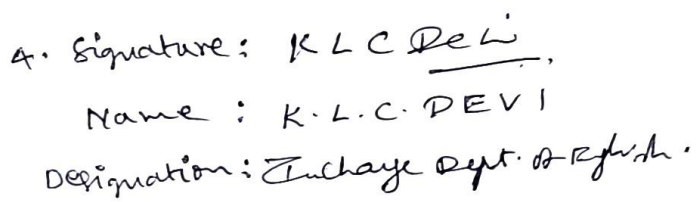 4. Signature: K L C Devi
Name : K. L. C. DEVI
Designation: Incharge Dept. of English.